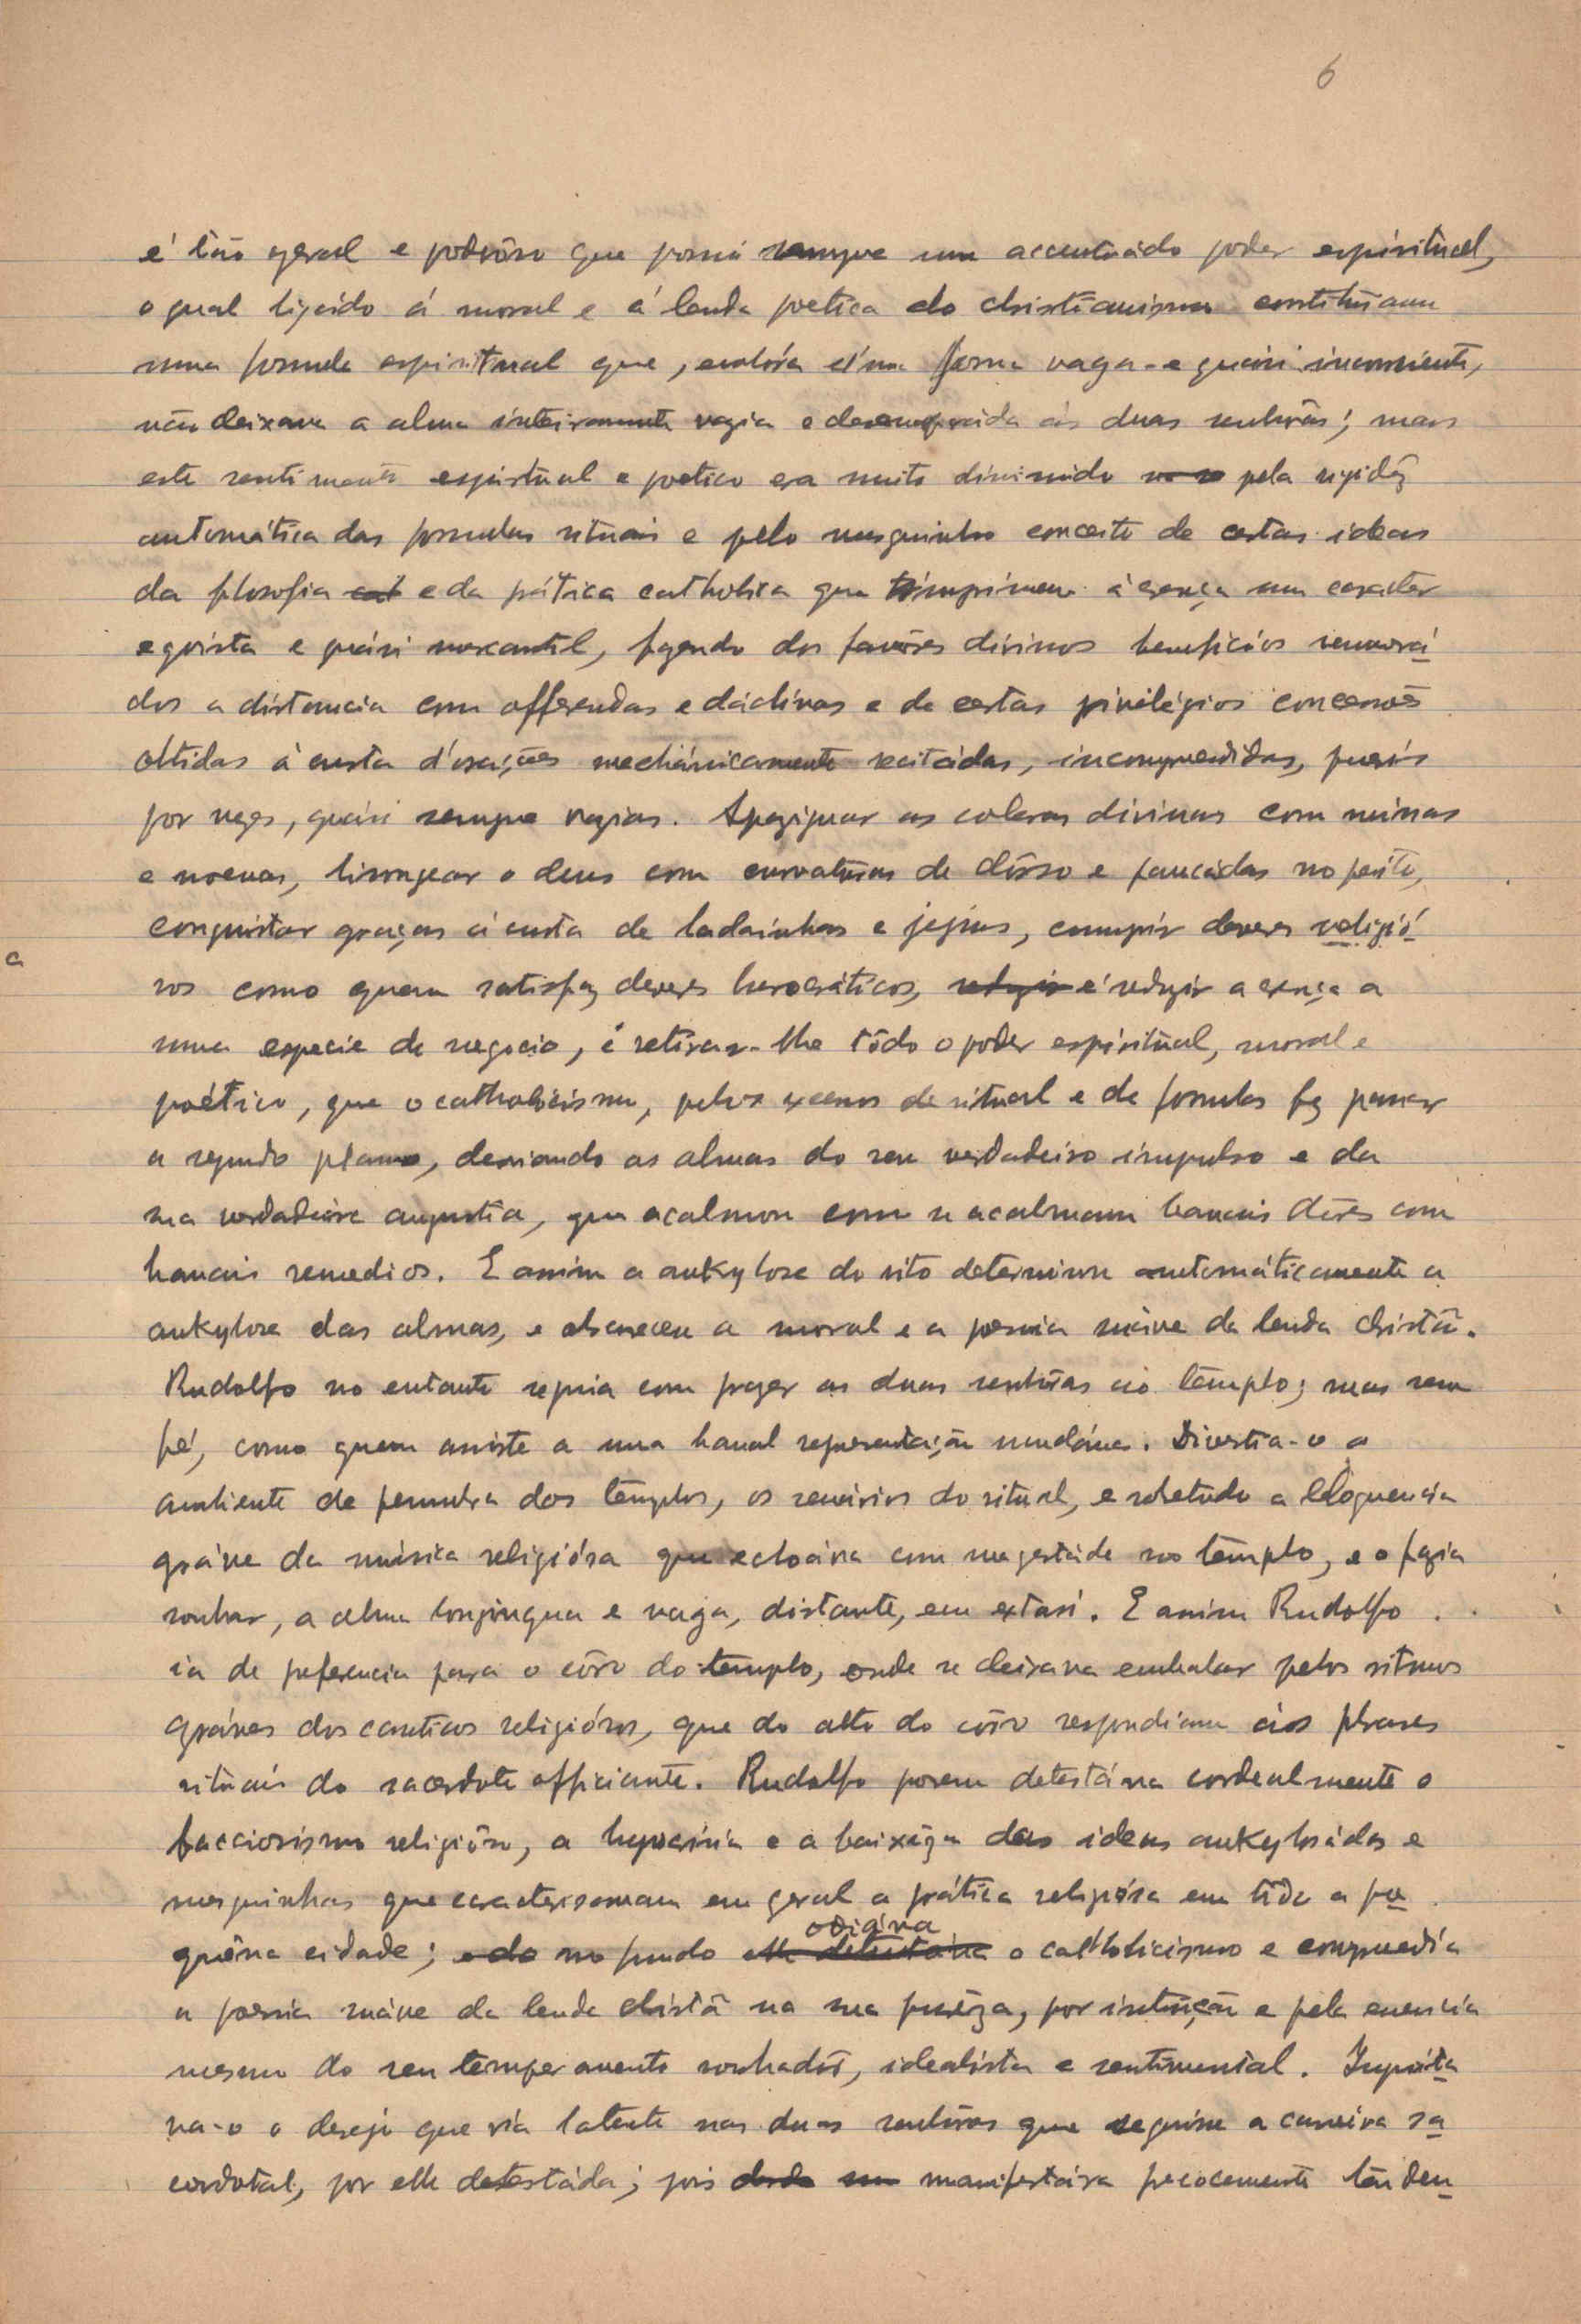 6
é tão geral e poderôso que possúi sempre um accentuádo poder espíritual,
o qual ligádo á moral e á lenda poetica do christianismo constituiam
uma formula espiritual que, embóra d'uma fórma vaga e quási inconsciente,
não deixava a alma inteiramente vazia e desamparáda ás duas senhôras; mas
este sentimento espiritual e poetico era muito diminuido pela rigidêz
automática das formulas rituais e pelo mesquinho conceito de certas ideas
da filosofia e da prática catholica que imprimem á crença um caracter
egoista e quási mercantil, fazendo dos favôres divinos beneficios remunerá
dos a distancia com offerendas e dádivas e de certos privilégios concessões
obtidas á custa d'orações mechánicamente recitádas, incomprendidas, pueris
por vezes, quási sempre vazias. Apaziguar as coleras divinas com missas
e novenas, lisongear o deus com curvatúras de dôrso e pancádas no peito,
conquistar graças á custa de ladaínhas e jejúns, cumprir deveres religió
a
sos como quem satisfaz deveres burocráticos, é reduzir a crença a
uma especie de negocio, é retirar-lhe tôdo o poder espíritual, moral e
poético, que o catholicismo, pelos excessos de ritual e de formulas fez passar
a segundo plano, desviando as almas do seu verdadeiro impulso e da
sua verdadeira angustia, que acalmou como se acalmam banais dôres com
banais remedios. E assim a ankylose do rito determinou automáticamente a
ankylose das almas, e obscureceu a moral e a poesia suáve da lenda christã.
Rudolfo no entanto seguia com prazer as duas senhôras ao têmplo; mas sem
fé, como quem assiste a uma banal representação mundána. Divertia-o o
ambiente de penumbra dos têmplos, os cenários do ritual, e sobretudo a eloquencia
gráve da música religiósa que echoáva com magestáde no têmplo, e o fazia
sonhar, a alma longinqua e vaga, distante, em extasi. E assim Rudolfo
ia de preferencia para o côro do templo, onde se deixava embalar pelos ritmos
gráves dos canticos religiósos, que do alto do côro respondiam ás phrases
rituais do sacerdote officiante. Rudolfo porem detestáva cordealmente o
facciosismo religiôso, a hypocrisia e a baixêza das ideas ankylosádas e
mesquinhas que caracterisavam em geral a prática religiósa em tôda a pe
quêna cidade; no fundo odiáva o catholicismo e comprendia
a poesia suáve da lenda christã na sua purêza, por intuição e pela essencia
mesmo do seu temperamento sonhadôr, idealista e sentimental. Irritáva
va-o o desejo que via latente nas duas senhôras que seguisse a carreira sa
cerdotal, por elle detestáda; pois manifestáva precocemente tenden